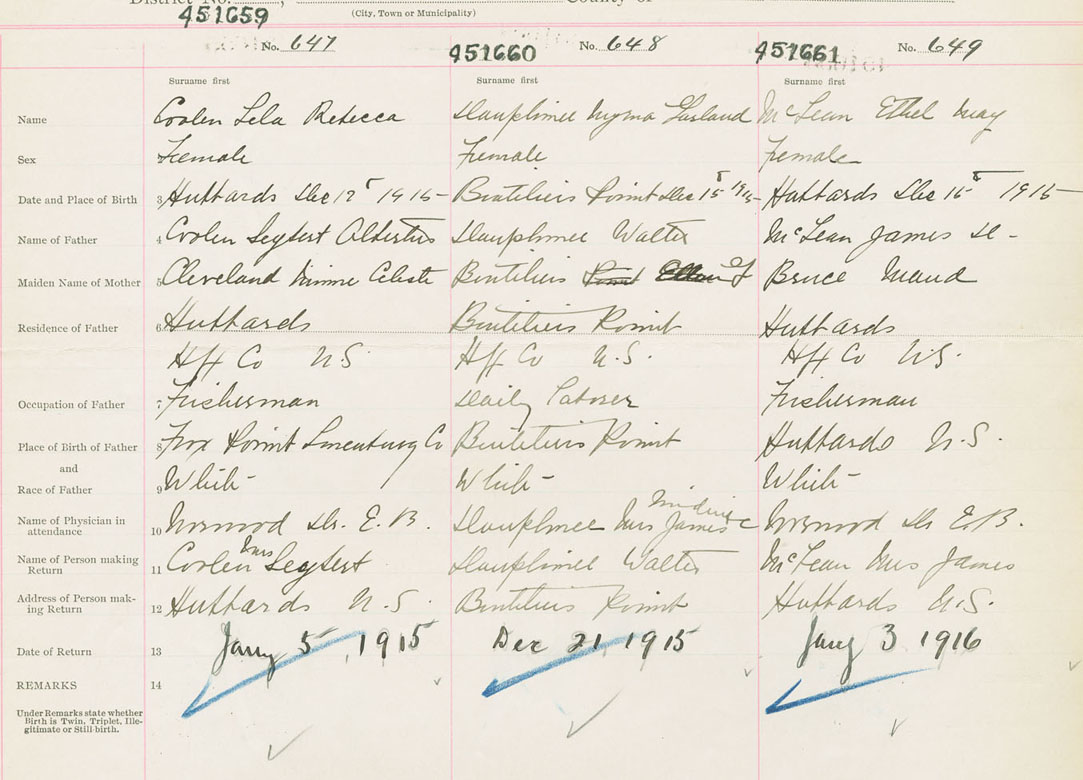 District No. , County of
451659 (City, Town or Municipality)
No. 647 451660 No. 648 451661 No. 649
Surname first Surname first Surname first
Name Coolen Lela Rebecca Dauphinee Garland McLean Ethel May
Sex Female Female Female
Date and Place of Birth 3 Hubbards Dec 12 1915 Boutiliers Point Dec 15 1915 Hubbards Dec 16 1915
Name of Father 4 Coolen Seyfert Albertus Dauphinee Walter McLean James
Maiden Name of Mother 5 Cleveland Minnie Celeste Boutiliers Bruce Maud
Residence of Father 6 Hubbards Boutiliers Point Hubbards
Hfx Co N.S. Hfx Co N.S. Hfx Co N.S.
Occupation of Father 7 Fisherman Daily Laborer Fisherman
Place of Birth of Father 8 Fox Point Lunenburg Co Boutiliers Point Hubbards N.S.
and
Race of Father 9 White White White
Name of Physician in attendance 10 Morwood Dr. E. B. Dauphinee Mrs James Morwood Dr E.B.
Name of Person making Return 11 Coolen Mrs Seyfert Dauphinee Walter McLean Mrs James
Address of Person making Return 12 Hubbards N.S. Boutiliers Point Hubbards N.S.
Date of Return 13 Jany 5, 1915 Dec 21, 1915 Jany 3 1916
REMARKS 14
Under Remarks state whether
Birth is Twin, Triplet, Ille-
gitimate or Still-birth.